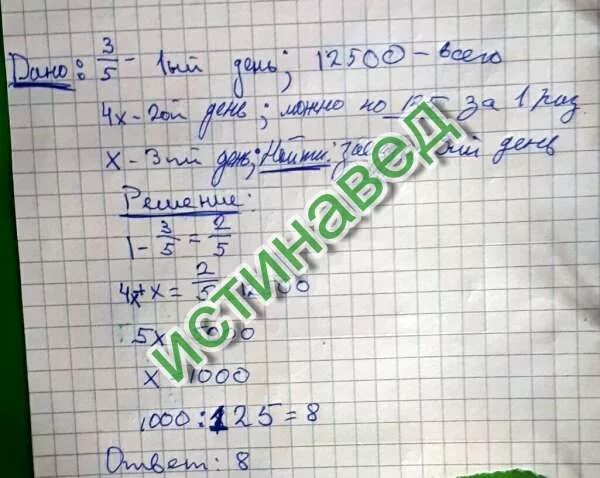 Дано: 3/5 - 1ый день; 12500 - всего
4x - 2ой день; можно по за 1 раз
x - 3ий день; Найти: день
Решение:
1 - 3/5 = 2/5
4x + x = 2/5
5x
x 1000
1000 : 125 = 8
Ответ: 8
истинавед